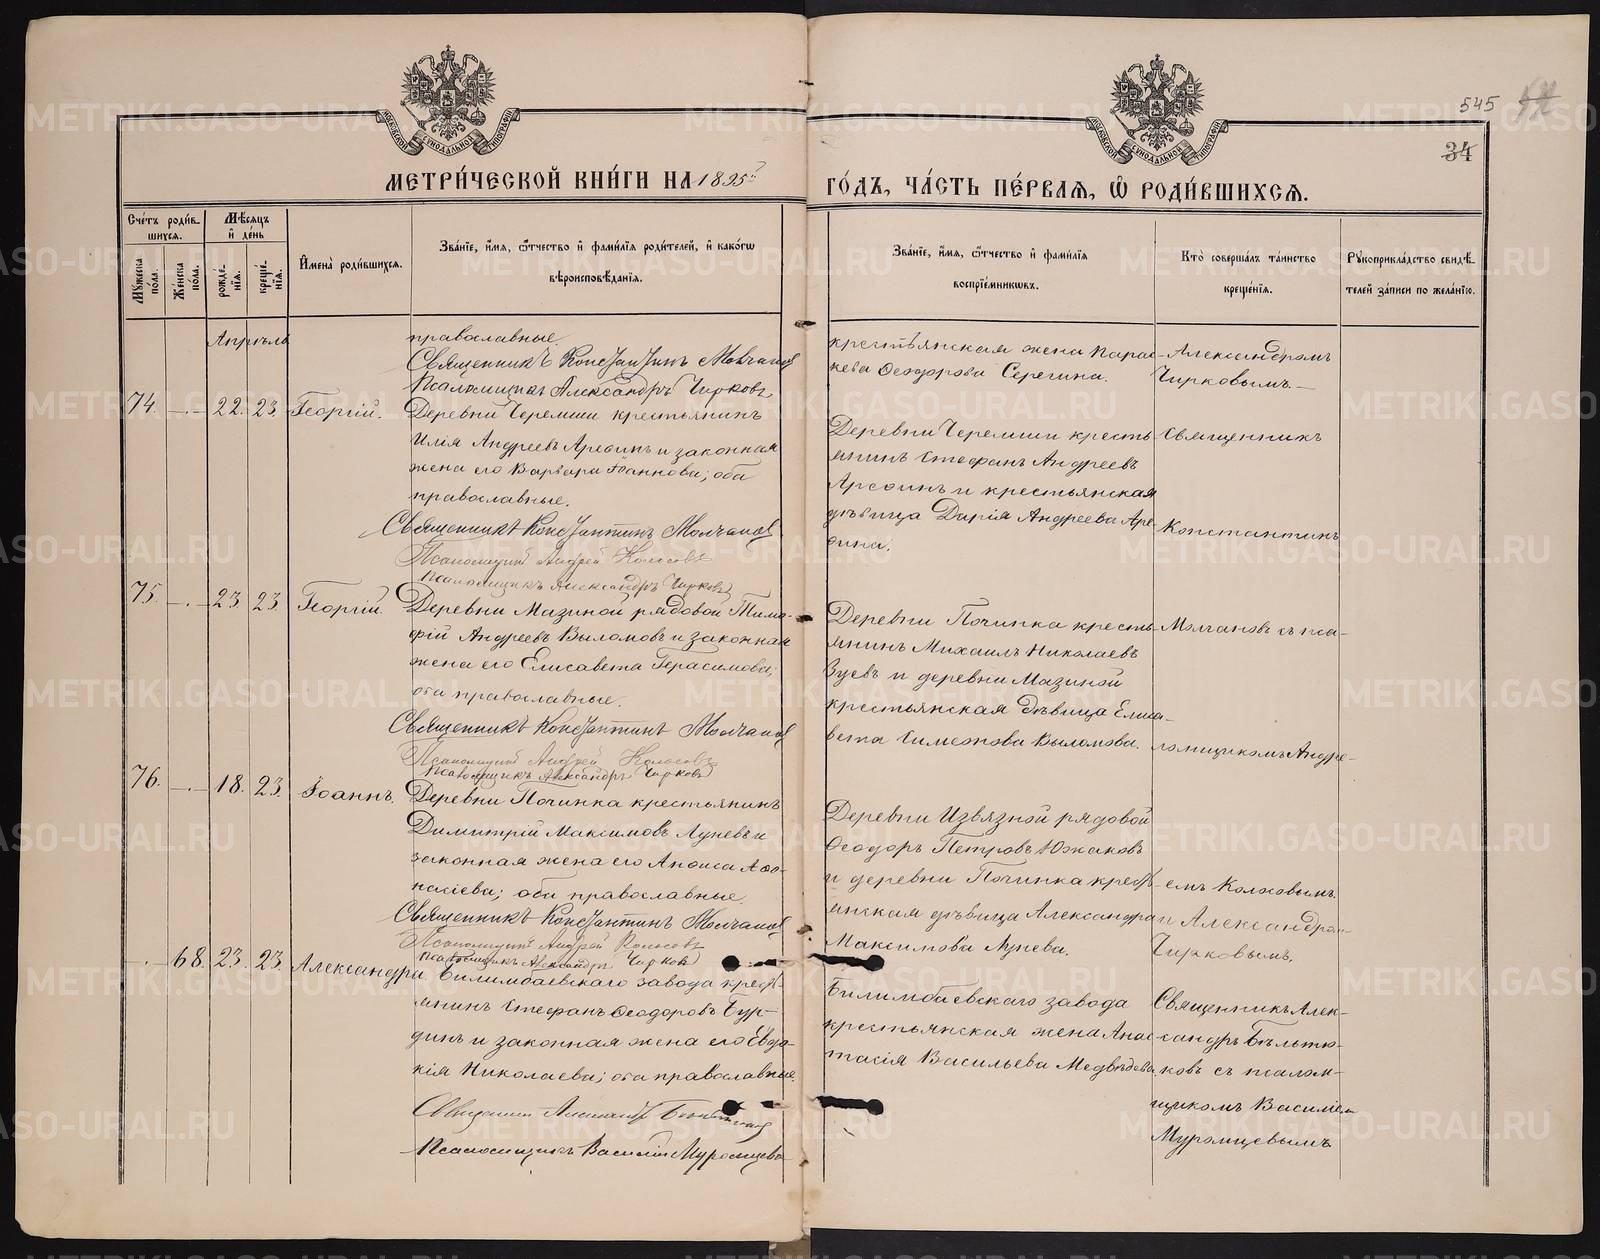 545
34
МЕТРИЧЕСКОЙ КНИГИ НА 1895 й
ГОДЪ, ЧАСТЬ ПЕРВАЯ, Ѡ РОДИВШИХСЯ.
Счетъ родив-
шихся.
Мужеска
пола.
Женска
пола.
Мѣсяцъ
и день
рожде-
нія.
креще-
нія.
Имена родившихся.
Званіе, имя, ѿчество и фамилія родителей, и какогѡ
вѣроисповѣданія.
Званіе, имя, ѿчество и фамилія
воспріемникѡвъ.
Кто совершалъ таинство
крещенія.
Рукоприкладство свидѣ-
телей записи по желанію.
Апрѣль
православные.
Священникъ Константинъ Молчановъ
Псаломщикъ Александръ Чирковъ
крестьянская жена Парас-
кева Ѳеодорова Серегина.
Александромъ
Чирковымъ.
74. 22. 23. Георгій.
Деревни Черемши крестьянинъ
Илія Андреевъ Арефинъ и законная
жена его Варвара Іоаннова; оба
православные.
Священникъ Константинъ Молчановъ
Псаломщикъ Андрей Колосовъ
Псаломщикъ Александръ Чирковъ
Деревни Черемши кресть-
янинъ Стефанъ Андреевъ
Арефинъ и крестьянская
дѣвица Дарія Андреева Аре-
фина.
Священникъ
Константинъ
75. 23. 23. Георгій.
Деревни Мазиной рядовой Тимо-
фій Андреевъ Выломовъ и законная
жена его Елисавета Герасимова;
оба православные.
Священникъ Константинъ Молчановъ
Псаломщикъ Андрей Колосовъ
Псаломщикъ Александръ Чирковъ
Деревни Починка кресть-
янинъ Михаилъ Николаевъ
Зуевъ и деревни Мазиной
крестьянская дѣвица Елиса-
вета Симеонова Выломова.
Молчановъ съ пса-
ломщикомъ Андре-
76. 18. 23. Іоаннъ.
Деревни Починка крестьянинъ
Димитрій Максимовъ Луневъ и
законная жена его Анфиса Афа-
насіева; оба православные.
Священникъ Константинъ Молчановъ
Псаломщикъ Андрей Колосовъ
Псаломщикъ Александръ Чирковъ
Деревни Извязной рядовой
Ѳеодоръ Петровъ Южаковъ
и деревни Починка кресть-
янская дѣвица Александра
Максимова Лунева.
емъ Колосовымъ
и Александромъ
Чирковымъ.
68. 23. 23. Александра.
Билимбаевскаго завода кресть-
янинъ Стефанъ Ѳеодоровъ Бур-
динъ и законная жена его Евдо-
кія Николаева; оба православные.
Священникъ Александръ Бѣльтюковъ
Псаломщикъ Василій Муромцевъ
Билимбаевскаго завода
крестьянская жена Анас-
тасія Васильева Медвѣдева.
Священникъ Алек-
сандръ Бѣльтю-
ковъ съ псалом-
щикомъ Василіемъ
Муромцевымъ